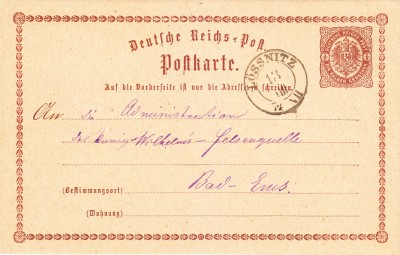 Deutsche Reichs-Post.
Postkarte.
Auf die Vorderseite ist nur die Adresse zu schreiben.
LÖSSNITZ
13
74
VII
An die Administration
der König-Wilhelms-Felsenquelle
(Bestimmungsort) Bad-Ems.
(Wohnung)